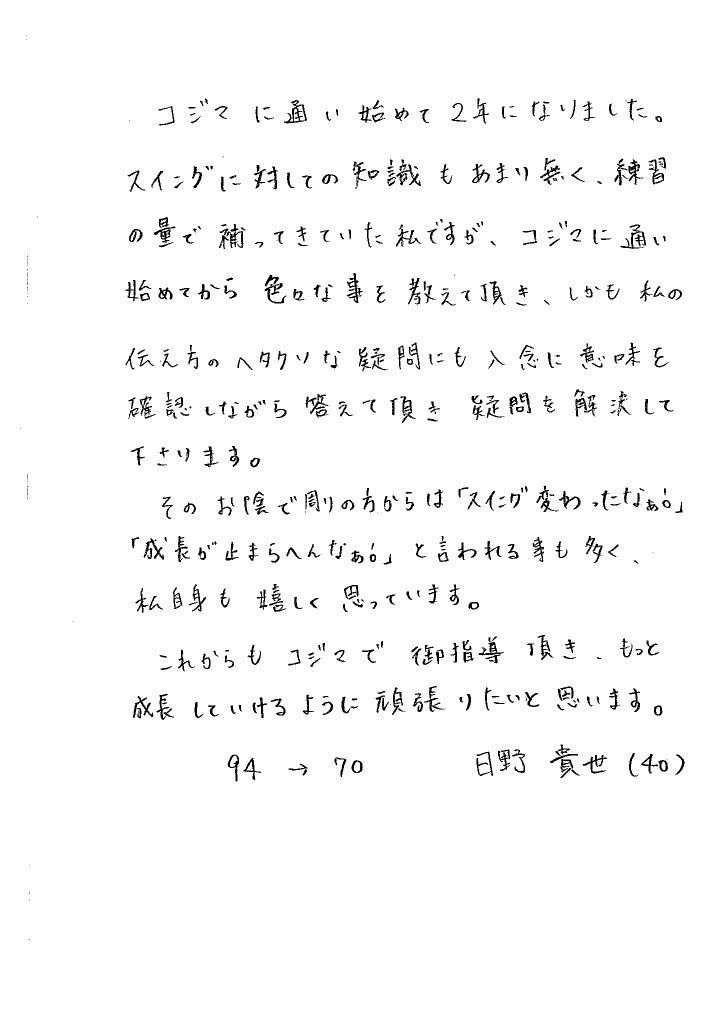 コジマに通い始めて2年になりました。
スイングに対しての知識もあまり無く、練習
の量で補ってきていた私ですが、コジマに通い
始めてから色々な事を教えて頂き、しかも私の
伝え方のヘタクソな疑問にも入念に意味を
確認しながら答えて頂き疑問を解決して
下さります。
そのお陰で周りの方からは「スイング変わったなぁ!。」
「成長が止まらへんなぁ!。」と言われる事も多く、
私自身も嬉しく思っています。
これからもコジマで御指導頂き、もっと
成長していけるように頑張りたいと思います。
94→70 日野貴世(40)